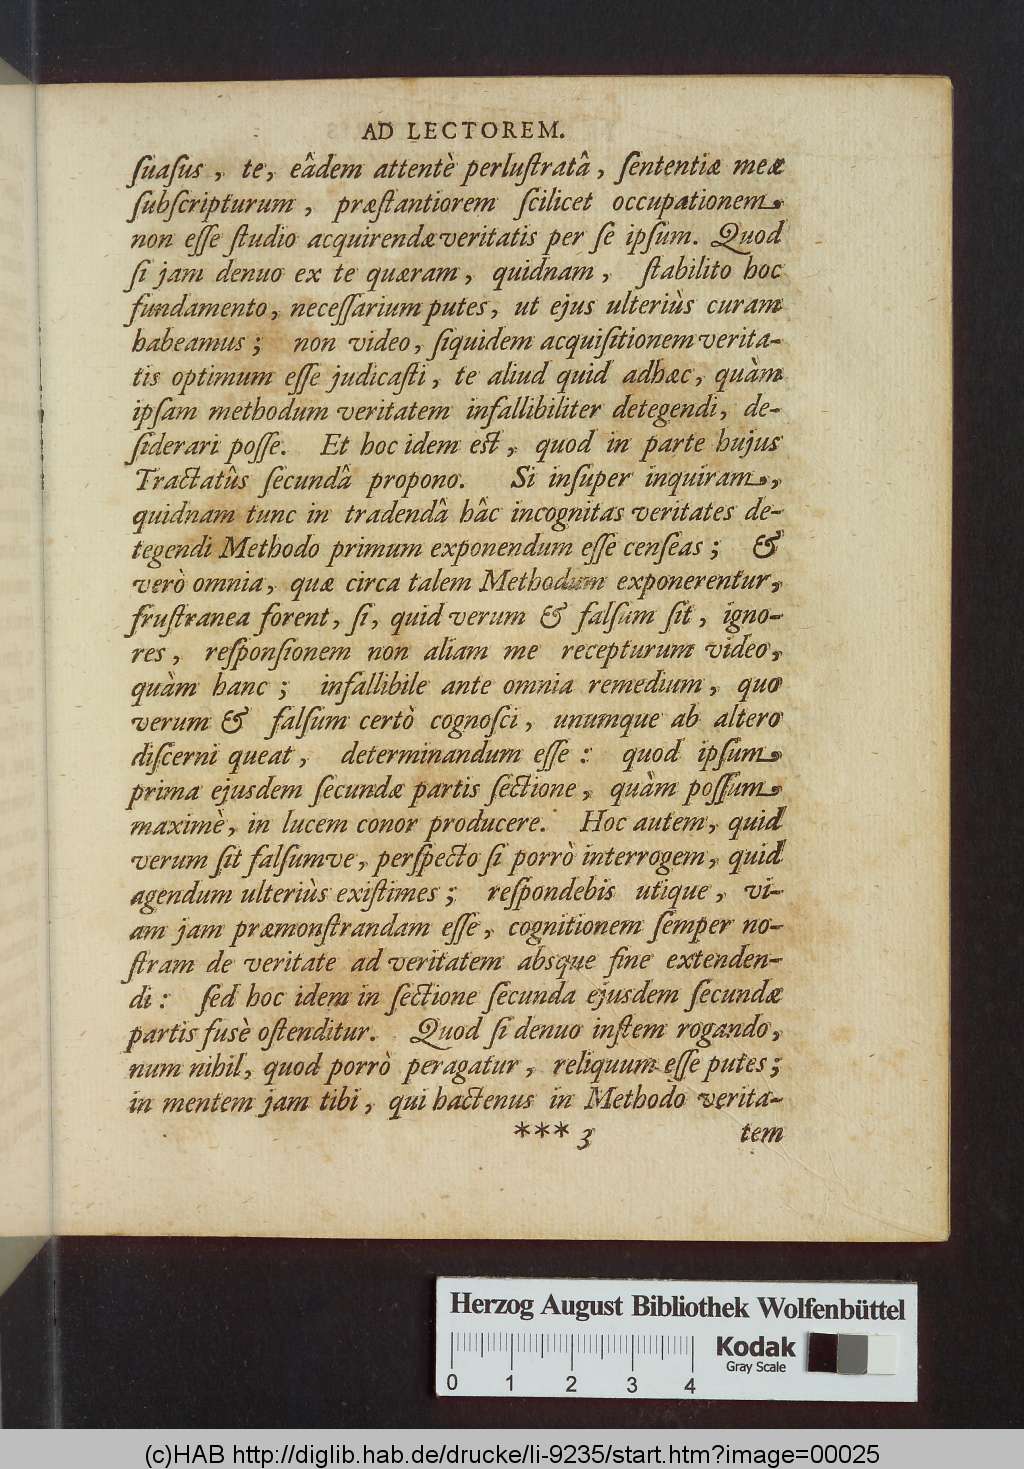 AD LECTOREM.
ſuaſus, te, eâdem attentè perluſtratâ, ſententiæ meæ
ſubſcripturum, præſtantiorem ſcilicet occupationem
non eſſe ſtudio acquirendæ veritatis per ſe ipſum. Quod
ſi jam denuo ex te quæram, quidnam, ſtabilito hoc
fundamento, neceſſarium putes, ut ejus ulteriùs curam
habeamus; non video, ſiquidem acquiſitionem verita-
tis optimum eſſe judicaſti, te aliud quid adhæc, quàm
ipſam methodum veritatem infallibiliter detegendi, de-
ſiderari poſſe. Et hoc idem est, quod in parte hujus
Tractatûs ſecundâ propono. Si inſuper inquiram,
quidnam tunc in tradendâ hâc incognitas veritates de-
tegendi Methodo primum exponendum eſſe cenſeas; &
verò omnia, quæ circa talem Methodum exponerentur,
fruſtranea forent, ſi, quid verum & falſum ſit, igno-
res, reſponſionem non aliam me recepturum video,
quàm hanc; infallibile ante omnia remedium, quo
verum & falſum certò cognoſci, unumque ab altero
diſcerni queat, determinandum eſſe: quod ipſum
prima ejusdem ſecundæ partis ſectione, quàm poſſum
maximè, in lucem conor producere. Hoc autem, quid
verum ſit falſumve, perſpecto ſi porrò interrogem, quid
agendum ulteriùs exiſtimes; reſpondebis utique, vi-
am jam præmonſtrandam eſſe, cognitionem ſemper no-
ſtram de veritate ad veritatem absque fine extenden-
di: ſed hoc idem in ſectione ſecunda ejusdem ſecundæ
partis fusè oſtenditur. Quod ſi denuo inſtem rogando,
num nihil, quod porrò peragatur, reliquum eſſe putes;
in mentem jam tibi, qui hactenus in Methodo verita-
*** 3 tem
Herzog August Bibliothek Wolfenbüttel
Kodak
Gray Scale
0 1 2 3 4
(c)HAB http://diglib.hab.de/drucke/li-9235/start.htm?image=00025